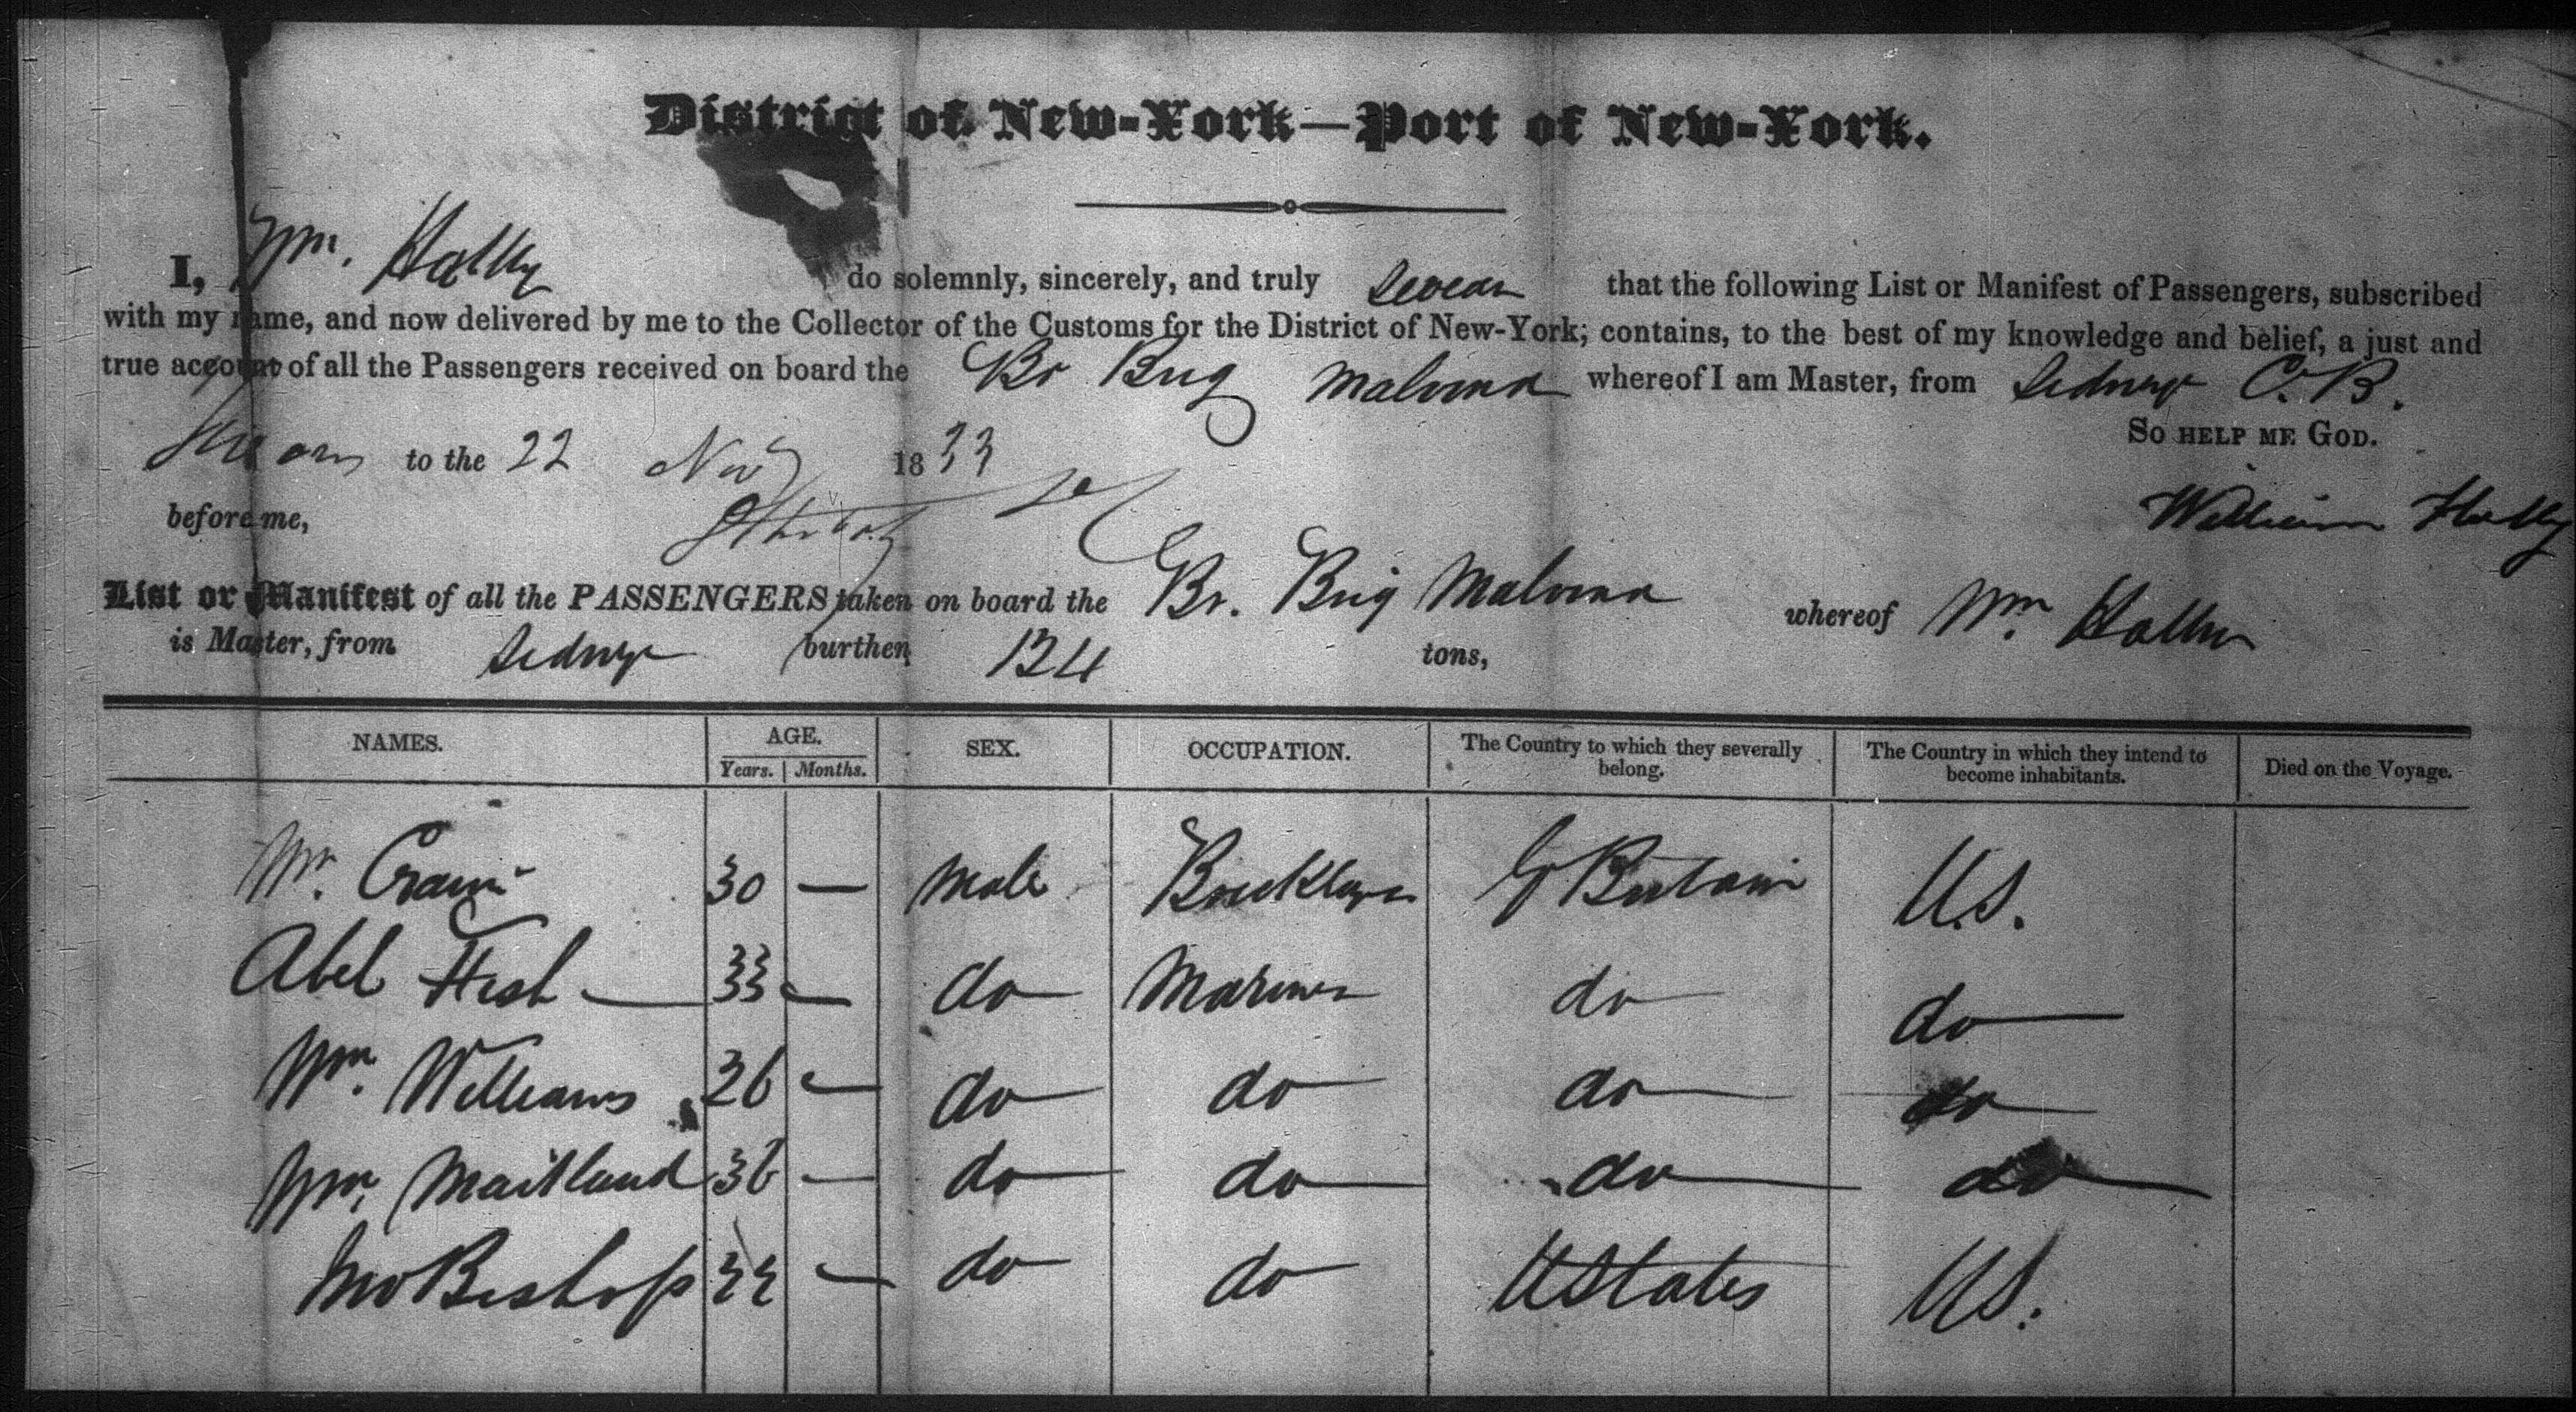 District of New-York—Port of New-York.
I, Wm. Halley do solemnly, sincerely, and truly swear that the following List or Manifest of Passengers, subscribed
with my name, and now delivered by me to the Collector of the Customs for the District of New-York; contains, to the best of my knowledge and belief, a just and
true account of all the Passengers received on board the Br Brig Malvina whereof I am Master, from Sidney C.B.
So help me God.
Sworn to the 22 Nov 1833
before me,
William Halley
List or Manifest of all the PASSENGERS taken on board the Br. Brig Malvina whereof Wm
is Master, from Sidney burthen 124 tons,
NAMES. AGE. SEX. OCCUPATION. The Country to which they severally belong. The Country in which they intend to become inhabitants. Died on the Voyage.
Years. Months.
30 — Male G Britain U.S.
Abel 33 — do Mariner do do
Wm. Williams 26 — do do do do
Wm. Maitland 36 — do do do do
Jno Bishop do do UStates US.